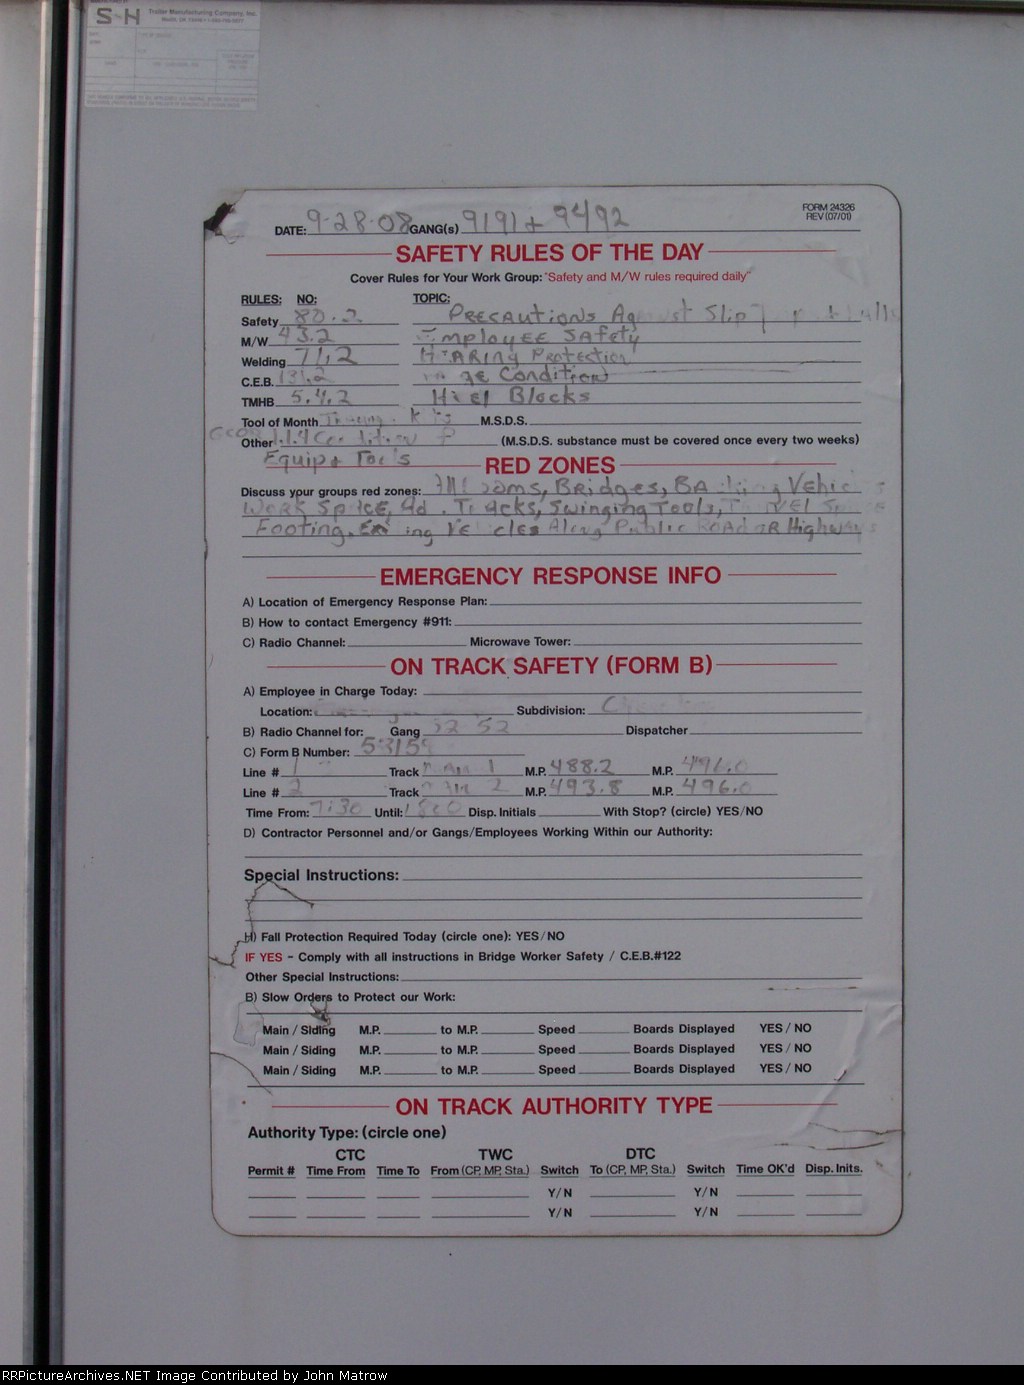 S-H Dozier Manufacturing Company, Inc.
FORM 24326
REV (07/01)
DATE: 9-28-08 GANG(s) 9191 + 9492
SAFETY RULES OF THE DAY
Cover Rules for Your Work Group: "Safety and M/W rules required daily"
RULES: NO: TOPIC:
Safety 80.2 PRECAUTIONS Against Slip
M/W 43.2 Employee Safety
Welding 71.2 HEARING Protection
C.E.B. 131.2 Condition
TMHB 5.4.2 Blocks
Tool of Month M.S.D.S.
Other 1.1.4 Condition of (M.S.D.S. substance must be covered once every two weeks)
Equip + Tools
RED ZONES
Discuss your groups red zones: Bridges, Vehic
Work Space, Tracks, Swinging Tools,
Footing. Along Public ROAD OR Highways
EMERGENCY RESPONSE INFO
A) Location of Emergency Response Plan:
B) How to contact Emergency #911:
C) Radio Channel: Microwave Tower:
ON TRACK SAFETY (FORM B)
A) Employee in Charge Today:
Location: Subdivision:
B) Radio Channel for: Gang 52 52 Dispatcher
C) Form B Number:
Line # 1 Track Main 1 M.P. 488.2 M.P. 496.0
Line # 2 Track Main 2 M.P. 493.8 M.P. 496.0
Time From: 7:30 Until: 1800 Disp. Initials With Stop? (circle) YES/NO
D) Contractor Personnel and/or Gangs/Employees Working Within our Authority:
Special Instructions:
H) Fall Protection Required Today (circle one): YES/NO
IF YES - Comply with all instructions in Bridge Worker Safety / C.E.B.#122
Other Special Instructions:
B) Slow Orders to Protect our Work:
Main / Siding M.P. to M.P. Speed Boards Displayed YES / NO
Main / Siding M.P. to M.P. Speed Boards Displayed YES / NO
Main / Siding M.P. to M.P. Speed Boards Displayed YES / NO
ON TRACK AUTHORITY TYPE
Authority Type: (circle one)
CTC TWC DTC
Permit # Time From Time To From (CP, MP, Sta.) Switch To (CP, MP, Sta.) Switch Time OK'd Disp. Inits.
Y/N Y/N
Y/N Y/N
RRPictureArchives.NET Image Contributed by John Matrow